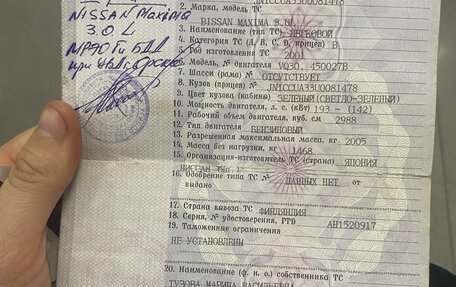 NISSAN Maxima
3.0 L
JN1CCUA33U0081478
2. Марка, модель ТС
BISSAN MAXIMA 3.0L
3. Наименование (тип ТС) ЛЕГКОВОЙ
4. Категория ТС (A, B, C, D, прицеп) B
5. Год изготовления ТС 2001
6. Модель, № двигателя VQ30. 450027B
7. Шасси (рама) № ОТСУТСТВУЕТ
8. Кузов (прицеп) № JN1CCUA33U0081478
9. Цвет кузова (кабины) ЗЕЛЕНЫЙ(СВЕТЛО-ЗЕЛЕНЫЙ)
10. Мощность двигателя, л. с. (кВт) 193 - (142)
11. Рабочий объем двигателя, куб. см 2988
12. Тип двигателя БЕНЗИНОВЫЙ
13. Разрешенная максимальная масса, кг 2005
14. Масса без нагрузки, кг 1468
15. Организация-изготовитель ТС (страна) ЯПОНИЯ
16. Одобрение типа ТС № ДАННЫХ НЕТ от
выдано
17. Страна вывоза ТС ФИНЛЯНДИЯ
18. Серия, № удостоверения, ГТД АН1520917
19. Таможенные ограничения
НЕ УСТАНОВЛЕНЫ
20. Наименование (ф. и. о.) собственника ТС
ТУЗОВА МАРИНА ВАСИЛЬЕВНА